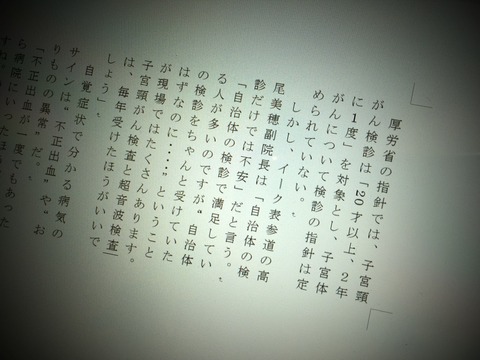 厚労省の指針では、子宮頸
がん検診は「20才以上、2年
に1度」を対象とし、子宮体
がんについて検診の指針は定
められていない。
しかし、イーク表参道の高
尾美穂副院長は「自治体の検
診だけでは不安」だと言う。
「自治体の検診で満足してい
る人が多いのですが〝自治体
の検診をちゃんと受けていた
はずなのに‥‥〟ということ
が現場ではたくさんあります。
子宮頸がん検査と超音波検査
は、毎年受けたほうがいいで
しょう」
自覚症状で分かる病気の
サインは〝不正出血〟や〝お
りものの異常〟だ。
「不正出血が一度でもあった
ら病院にいったほう